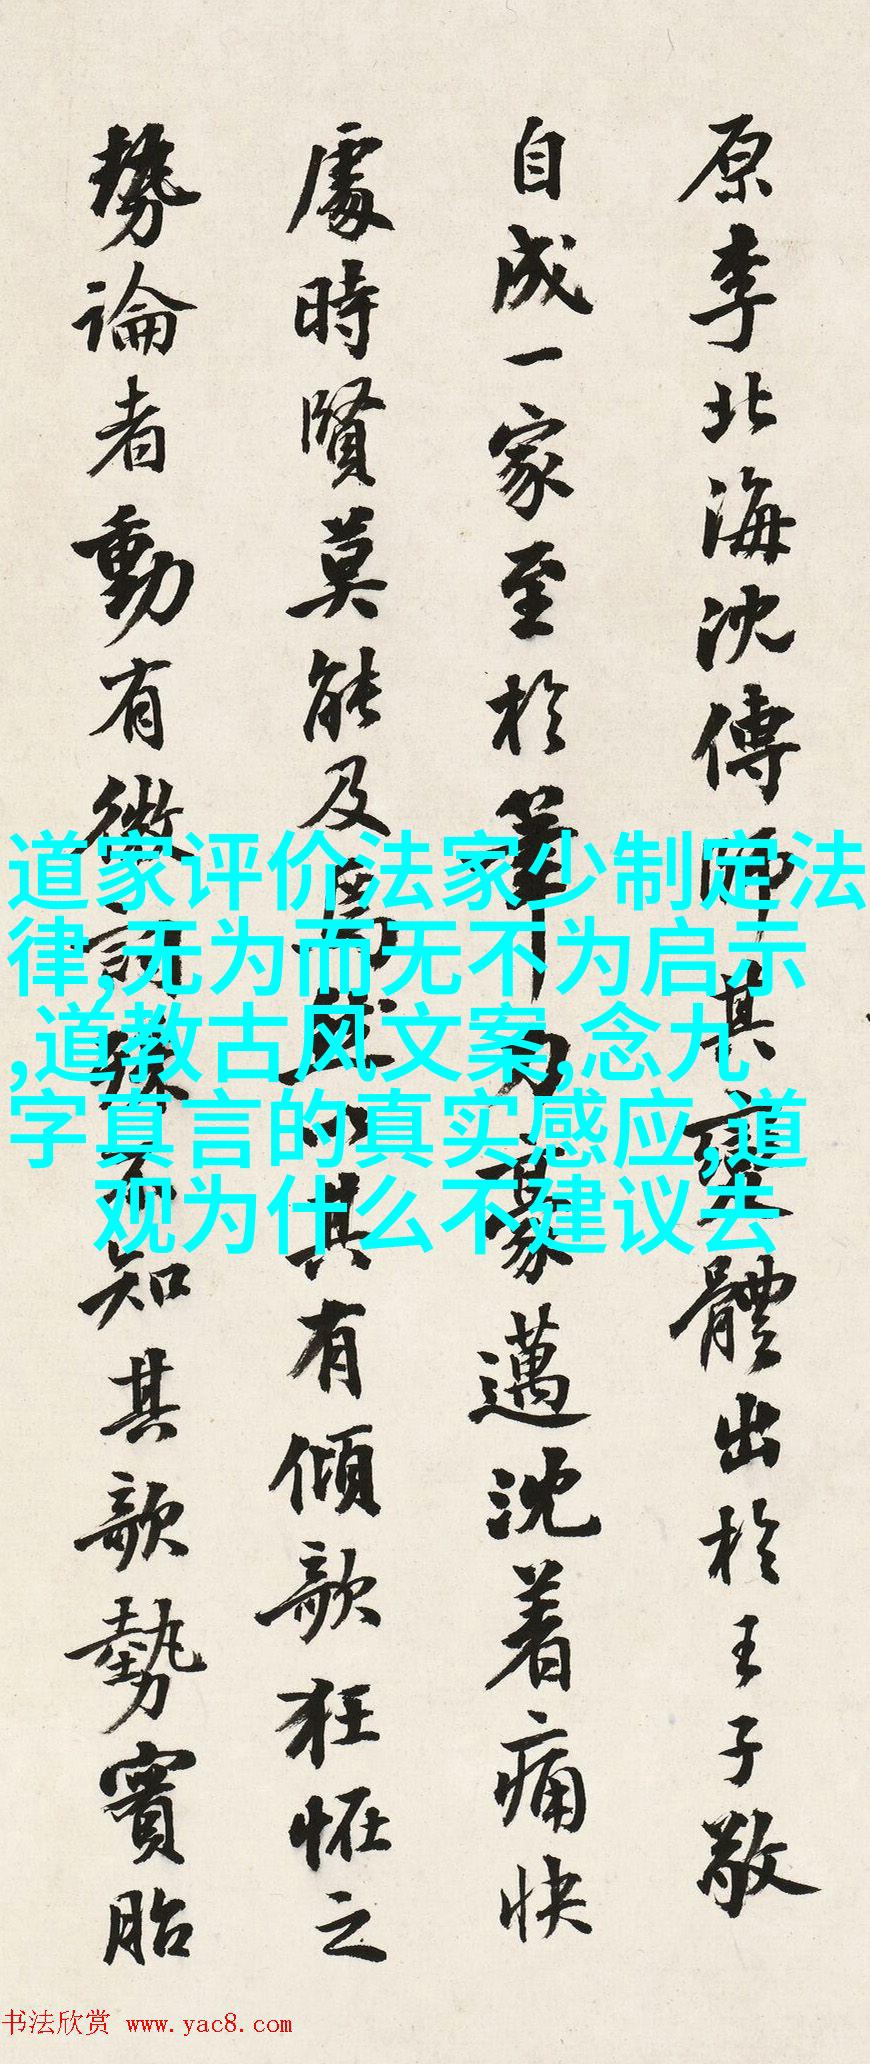 原李北海沈傳師其變體出於王子敬
自成一家至於筆力豪邁沈着痛快
處時賢莫能及焉然以其有傾欹狂怪之
勢論者動有微詞殊不知其欹勢實胎
道家评价法家少制定法
律,无为而无不为启示
,道教古风文案,念九
字真言的真实感应,道
观为什么不建议去
书法欣赏 www.yac8.com